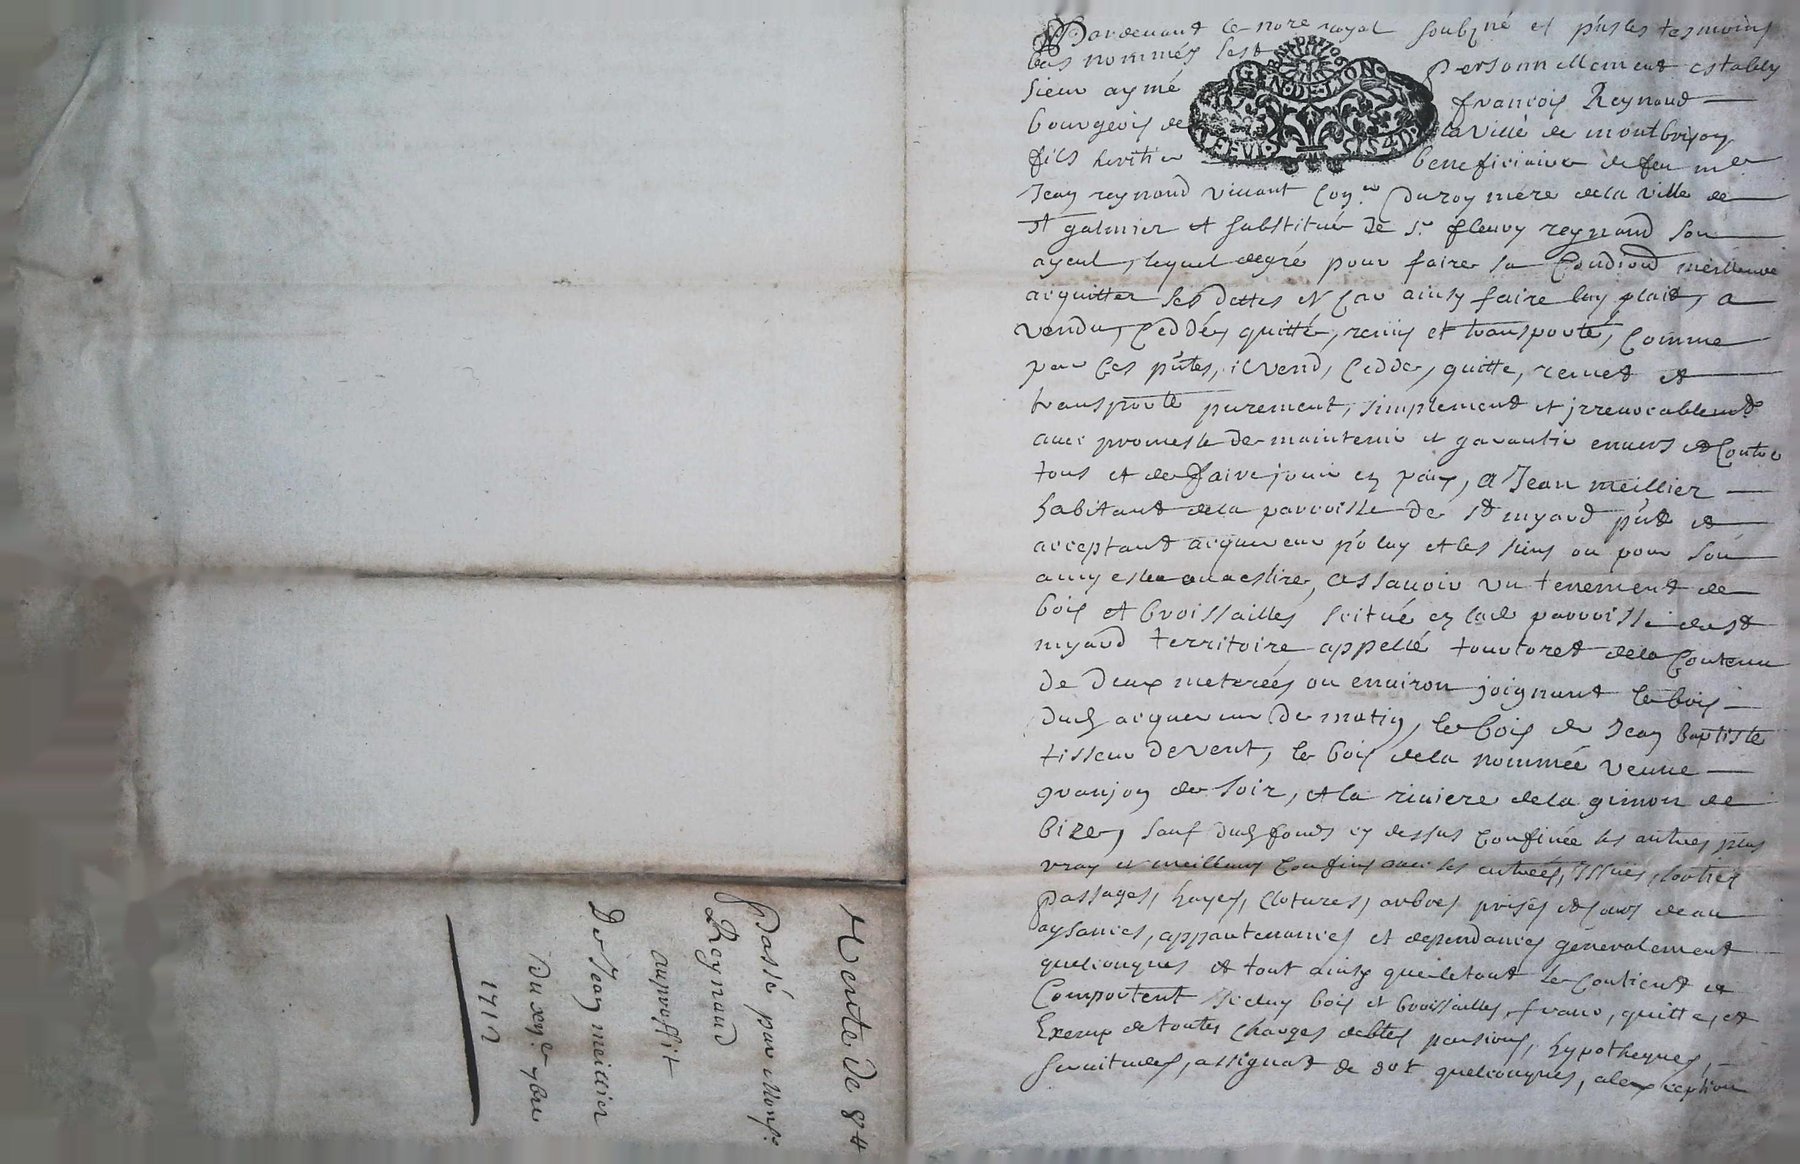 Pardevant le no.re royal soubzné et p.ñs les tesmoins
bas nommés s'est personnellement estably
sieur aymé françois Reynaud
bourgeois de la ville de montbrison
fils heritier beneficiaire de feu m.e
Jean reynaud vivant Con.er du roy mère de la ville de
st galmier et substitué de s.r fleury reynaud son
ayeul, lequel degré pour faire sa Condiõn meilleure
acquitter ses dettes et Car ainsy faire luy plait, a
vendu, Ceddé, quitté, remis et transporté, Comme
par Ces p.ñtes, il vend, Cedde, quitte, remet et
transporte purement, simplement et jrrevocablem.t
avec promesse de maintenir et garantir envers et Contre
tous et de faire jouir en paix, a Jean meillier
habitant de la parroisse de st myard p.ñt et
acceptant acquereur p.o luy et les siens ou pour son
amy esleu ou a eslire, assavoir un tenement de
bois et broissailles scitué en lad parroisse de st
myard territoire appellé toutoret de la Contenu
de deux meterées ou environ joignant le bois
dud acquereur de matin, le bois de Jean baptiste
tisseur de vent, le bois de la nommée veuve
granjon de soir, et la riviere de la gimon de
bize, sauf dud fonds cy dessus Confinée les autres plus
vray et meilleurs Confins avec les entrées, Issues, sorties
passages, hayes, Clotures, arbres prises et cours deau
aysances, appartenances et dependances generalement
quelconques et tout ainsy que le tout se Contient et
Comportent Iceluy bois et broissailles, franc, quitte, et
Exemp de toutes Charges debtes pensions, hypotheques,
servitudes, assignat de dot quelconques, a lexception
GEN. DE. LYON.
Vente de 84
Passé par Mons.r
Reynaud
au proffit
De Jean meillier
Du xx.e 9bre
1712